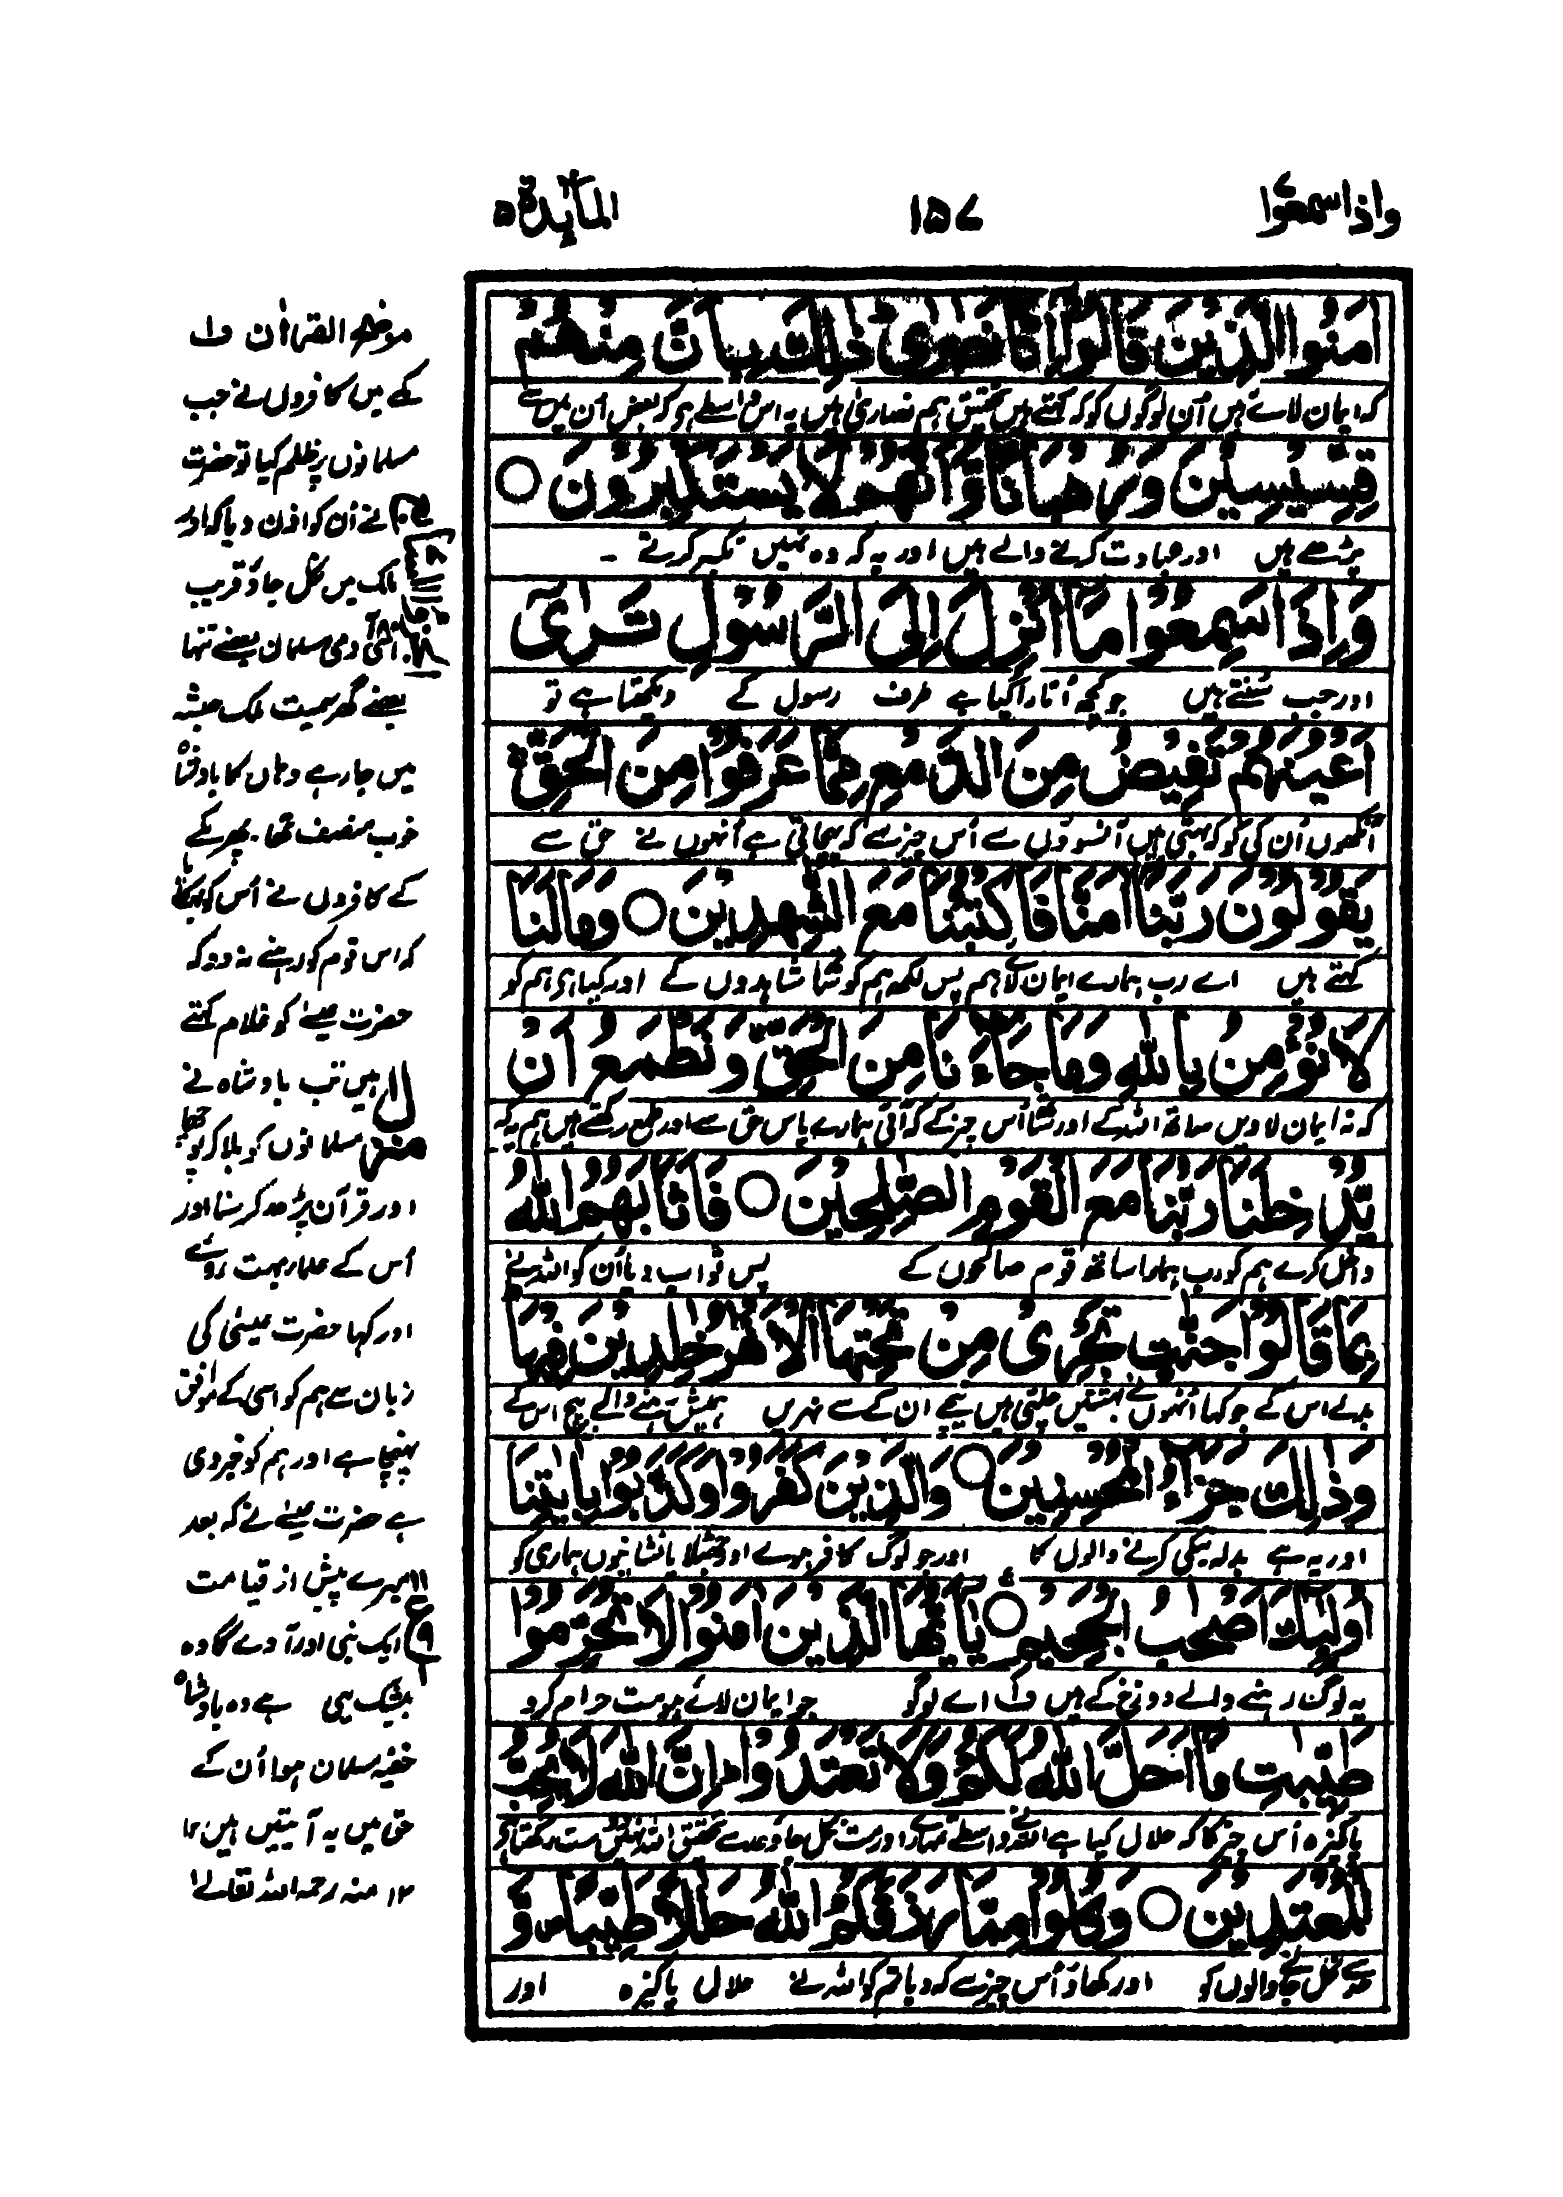 واذاسمعوا ۱۵۷ المآئدة ۵
اٰمَنُوا الَّذِيْنَ قَالُوْٓا اِنَّا نَصٰرٰى ذٰلِكَ بِاَنَّ مِنْهُمْ
کہ ایمان لائے ہیں اُن لوگوں کو کہ کہتے ہیں تحقیق ہم نصاریٰ ہیں یہ اس واسطے ہے کہ بعض اُن میں سے
قِسِّيْسِيْنَ وَرُهْبَانًا وَّاَنَّهُمْ لَا يَسْتَكْبِرُوْنَ ○
پڑھے ہیں اور عبادت کرنے والے ہیں اور یہ کہ وہ نہیں تکبر کرتے ۔
وَاِذَا سَمِعُوْا مَآ اُنْزِلَ اِلَى الرَّسُوْلِ تَرٰٓى
اور جب سُنتے ہیں جو کچھ اُتارا گیا ہے طرف رسول کے دیکھتا ہے تو
اَعْيُنَهُمْ تَفِيْضُ مِنَ الدَّمْعِ مِمَّا عَرَفُوْا مِنَ الْحَقِّ ۚ
آنکھوں اُن کی کو کہ بہتی ہیں آنسوؤں سے اُس چیز سے کہ پہچانی ہے اُنہوں نے حق سے
يَقُوْلُوْنَ رَبَّنَآ اٰمَنَّا فَاكْتُبْنَا مَعَ الشّٰهِدِيْنَ ○ وَمَا لَنَا
کہتے ہیں اے رب ہمارے ایمان لائے ہم پس لکھ ہم کو ساتھ شاہدوں کے اور کیا ہے ہم کو
لَا نُؤْمِنُ بِاللّٰهِ وَمَا جَآءَنَا مِنَ الْحَقِّ وَنَطْمَعُ اَنْ
کہ نہ ایمان لاویں ساتھ اللہ کے اور ساتھ اُس چیز کے کہ آئی ہمارے پاس حق سے اور طمع رکھتے ہیں ہم یہ کہ
يُّدْخِلَنَا رَبُّنَا مَعَ الْقَوْمِ الصّٰلِحِيْنَ ○ فَاَثَابَهُمُ اللّٰهُ
داخل کرے ہم کو رب ہمارا ساتھ قوم صالحوں کے پس ثواب دیا اُن کو اللہ نے
بِمَا قَالُوْا جَنّٰتٍ تَجْرِيْ مِنْ تَحْتِهَا الْاَنْهٰرُ خٰلِدِيْنَ فِيْهَا
بدلے اس کے جو کہا اُنہوں نے بہشتیں چلتی ہیں نیچے ان کے سے نہریں ہمیش رہنے والے بیچ اس کے
وَذٰلِكَ جَزَآءُ الْمُحْسِنِيْنَ ○ وَالَّذِيْنَ كَفَرُوْا وَكَذَّبُوْا بِاٰيٰتِنَآ
اور یہ ہے بدلہ نیکی کرنے والوں کا اور جو لوگ کافر ہوئے اور جھٹلایا نشانیوں ہماری کو
اُولٰٓئِكَ اَصْحٰبُ الْجَحِيْمِ ○ يٰٓاَيُّهَا الَّذِيْنَ اٰمَنُوْا لَا تُحَرِّمُوْا
یہ لوگ رہنے والے دوزخ کے ہیں ف اے لوگو جو ایمان لائے ہو مت حرام کرو
طَيِّبٰتِ مَآ اَحَلَّ اللّٰهُ لَكُمْ وَلَا تَعْتَدُوْا ؕ اِنَّ اللّٰهَ لَا يُحِبُّ
پاکیزہ اُس چیز کا کہ حلال کیا ہے اللہ نے واسطے تمہارے اور مت نکل جاؤ حد سے تحقیق اللہ نہیں دوست رکھتا
الْمُعْتَدِيْنَ ○ وَكُلُوْا مِمَّا رَزَقَكُمُ اللّٰهُ حَلٰلًا طَيِّبًا ۪ وَّ
حد سے نکل جانے والوں کو اور کھاؤ اُس چیز سے کہ دیا تم کو اللہ نے حلال پاکیزہ اور
موضح القرآن ف ۱
مکے میں کافروں نے جب
مسلمانوں پر ظلم کیا تو حضرت
نے اُن کو اذن دیا کہ اور
ملک میں نکل جاؤ قریب
اسّی آدمی مسلمان بعضے تنہا
بعضے گھر سمیت ملک حبشہ
میں جا رہے وہاں کا بادشاہ
خوب منصف تھا۔ پھر مکے
کے کافروں نے اُس کو بہکایا
کہ اس قوم کو رہنے نہ دو کہ
حضرت عیسےٰ کو غلام کہتے
ہیں تب بادشاہ نے
مسلمانوں کو بلا کر پوچھا
اور قرآن پڑھ کر سنا اور
اُس کے علماء بہت روئے
اور کہا حضرت عیسیٰ کی
زبان سے ہم کو اسی کے موافق
پہنچا ہے اور ہم کو خبر دی
ہے حضرت عیسےٰ نے کہ بعد
میرے پیش از قیامت
ایک نبی اور آوے گا وہ
بیشک یہی ہے وہ بادشاہ
خفیہ مسلمان ہوا اُن کے
حق میں یہ آیتیں ہیں ۱۲
۱۲ منہ رحمہ اللہ تعالےٰ
منزل